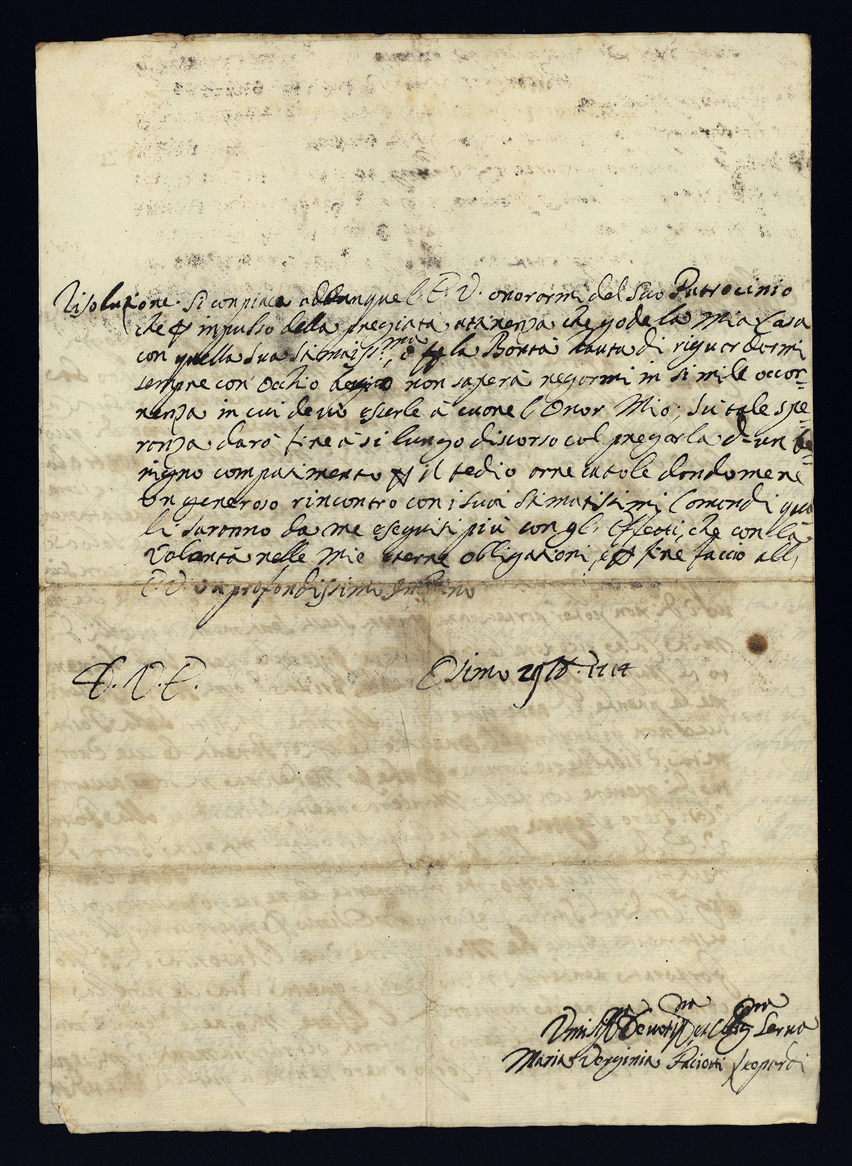 risoluzione. Si compiacia addunque l'E. V. onorarmi del suo Patrocinio
che p impulso della pregiata attinenza che gode la Mia Casa
con quella Sua Stimatiss.ma, e p la Bontà hauta di riguardarmi
sempre con occhio non saperà negarmi in simile occor=
renza in cui deve eserle à cuore l'Onor Mio; Su tale spe=
ranza darò fine à sì lungo discorso col pregarla d'un be=
nigno compatimento p il tedio dandomene
un generoso rincontro con i suoi stimatissimi Comandi qua
li saranno da me eseguiti più con gl'Effetti, che con la
Volontà nelle mie eterne obligazioni, e p fine faccio all'
E. V. un profondissimo Inchino
D. V. E. Osimo 29
Umiliss.ma Devotis.ma et Oblig.ma Serva
Maria Verginia Paciotti Leopardi